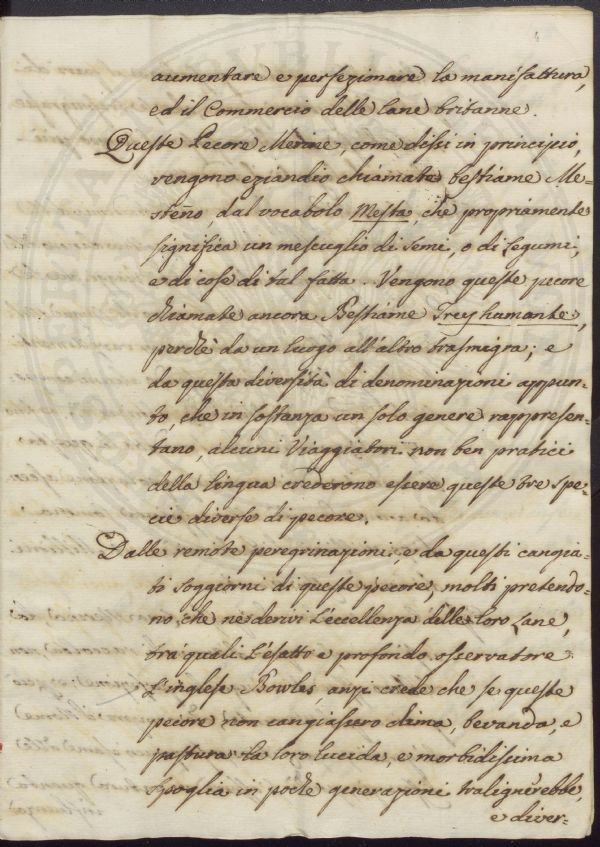 aumentare e perfezionare la manifattura,
ed il Commercio delle Lane britanne.
Queste Pecore Merine, come dissi in principio,
vengono eziandio chiamate bestiame Me=
steño dal vocabolo Mesta, che propriamente
significa un mescuglio di semi, o di Legumi,
e di cose di tal fatta. Vengono queste pecore
chiamate ancora Bestiame Treshumante,
perchè da un luogo all'altro trasmigra; e
da questa diversità di denominazioni appun=
to, che in sostanza un solo genere rappresen=
tano, alcuni Viaggiatori non ben pratici
della Lingua crederono essere queste tre spe=
cie diverse di pecore.
Dalle remote peregrinazioni, e da questi cangia=
ti soggiorni di queste pecore, molti pretendo=
no, che ne derivi l'eccellenza delle loro Lane,
tra' quali l'esatto e profondo osservatore
l'inglese Bowles, anzi crede che se queste
pecore non cangiassero clima, bevanda, e
pastura la loro lucida, e morbidissima
spoglia in poche generazioni tralignerebbe,
e diver=